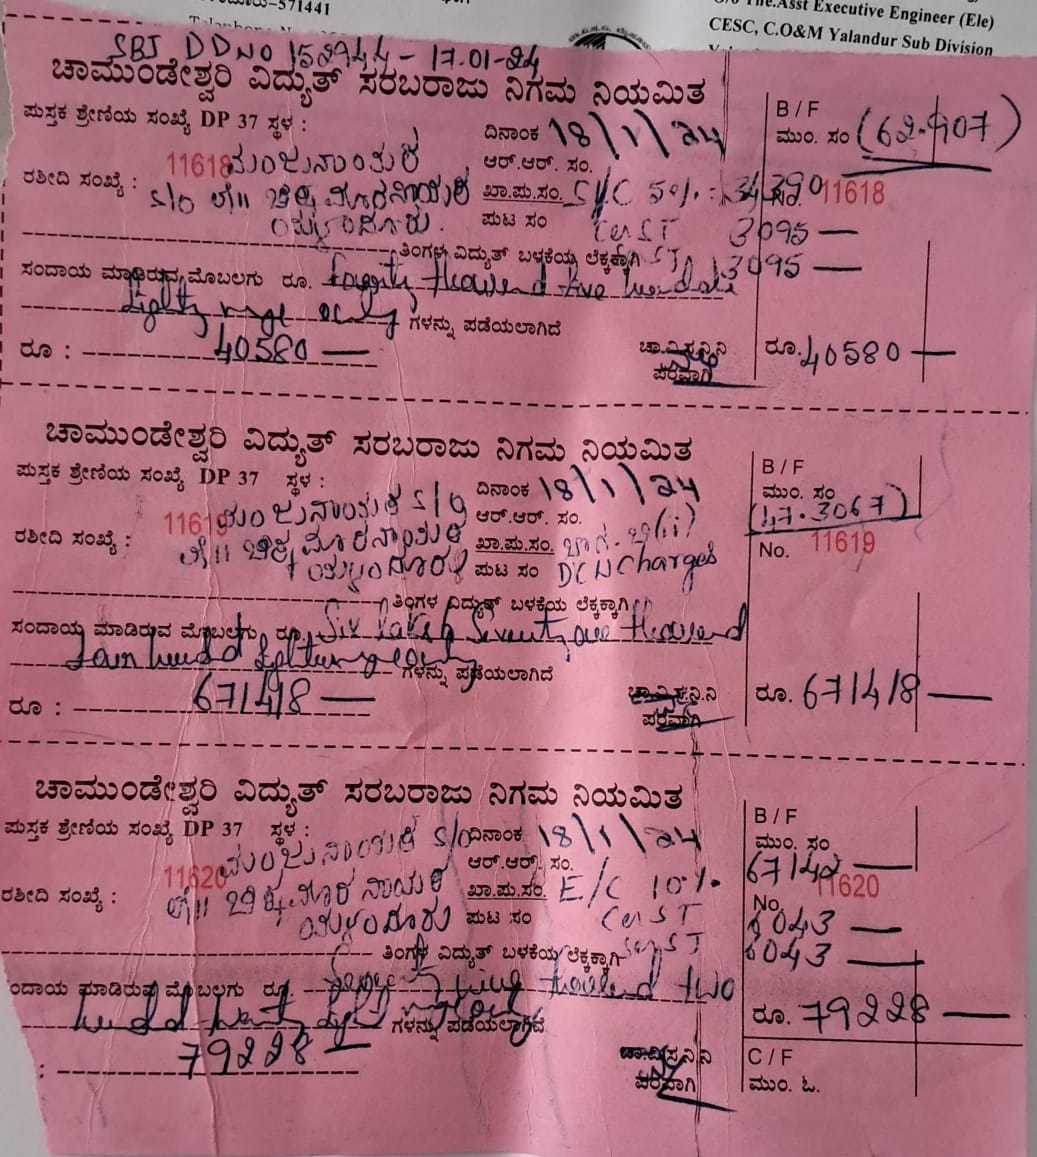 -571441
The.Asst Executive Engineer (Ele)
CESC, C.O&M Yalandur Sub Division
SBI DD NO 152944 - 17.01-24
ಚಾಮುಂಡೇಶ್ವರಿ ವಿದ್ಯುತ್ ಸರಬರಾಜು ನಿಗಮ ನಿಯಮಿತ
ಪುಸ್ತಕ ಶ್ರೇಣಿಯ ಸಂಖ್ಯೆ DP 37 ಸ್ಥಳ :
ದಿನಾಂಕ 18/1/24
B / F
ಮುಂ. ಸಂ (62.907)
ರಶೀದಿ ಸಂಖ್ಯೆ : 11618 ಮಂಜುನಾಯಕ
ಆರ್.ಆರ್. ಸಂ.
S/o ಲೇ|| ಚಿಕ್ಕಮಾರನಾಯಕ
ಖಾ.ಪು.ಸಂ. S/C 5%: 34390
No. 11618
ಯಳಂದೂರು.
ಪುಟ ಸಂ CGST 3095 —
ತಿಂಗಳ ವಿದ್ಯುತ್ ಬಳಕೆಯ ಲೆಕ್ಕಕ್ಕಾಗಿ 3095 —
ಸಂದಾಯ ಮಾಡಿರುವ ಮೊಬಲಗು ರೂ.
ಗಳನ್ನು ಪಡೆಯಲಾಗಿದೆ
ರೂ : 40580 —
ಚಾ.ವಿ.ಸ.ನಿ.ನಿ
ಪರವಾಗಿ
ರೂ. 40580 —
ಚಾಮುಂಡೇಶ್ವರಿ ವಿದ್ಯುತ್ ಸರಬರಾಜು ನಿಗಮ ನಿಯಮಿತ
ಪುಸ್ತಕ ಶ್ರೇಣಿಯ ಸಂಖ್ಯೆ DP 37 ಸ್ಥಳ :
ದಿನಾಂಕ 18/1/24
B / F
ಮುಂ. ಸಂ
(47.3067)
ರಶೀದಿ ಸಂಖ್ಯೆ : 11619 ಮಂಜುನಾಯಕ S/o
ಆರ್.ಆರ್. ಸಂ.
ಲೇ|| ಚಿಕ್ಕಮಾರನಾಯಕ
ಖಾ.ಪು.ಸಂ.
No. 11619
ಯಳಂದೂರು
ಪುಟ ಸಂ DCW Charges
ತಿಂಗಳ ವಿದ್ಯುತ್ ಬಳಕೆಯ ಲೆಕ್ಕಕ್ಕಾಗಿ
ಸಂದಾಯ ಮಾಡಿರುವ ಮೊಬಲಗು ರೂ. Six lakh Seventy one thousand
ಗಳನ್ನು ಪಡೆಯಲಾಗಿದೆ
ರೂ : 671418 —
ಚಾ.ವಿ.ಸ.ನಿ.ನಿ
ಪರವಾಗಿ
ರೂ. 671418 —
ಚಾಮುಂಡೇಶ್ವರಿ ವಿದ್ಯುತ್ ಸರಬರಾಜು ನಿಗಮ ನಿಯಮಿತ
ಪುಸ್ತಕ ಶ್ರೇಣಿಯ ಸಂಖ್ಯೆ DP 37 ಸ್ಥಳ :
ದಿನಾಂಕ 18/1/24
B / F
ಮುಂ. ಸಂ
67142 —
ರಶೀದಿ ಸಂಖ್ಯೆ : 11620 ಮಂಜುನಾಯಕ S/o
ಆರ್.ಆರ್. ಸಂ.
ಲೇ|| ಚಿಕ್ಕಮಾರನಾಯಕ
ಖಾ.ಪು.ಸಂ. E/C 10%
No. 11620
ಯಳಂದೂರು
ಪುಟ ಸಂ CGST 6043 —
ತಿಂಗಳ ವಿದ್ಯುತ್ ಬಳಕೆಯ ಲೆಕ್ಕಕ್ಕಾಗಿ SGST 6043 —
ಂದಾಯ ಮಾಡಿರುವ ಮೊಬಲಗು ರೂ
ಗಳನ್ನು ಪಡೆಯಲಾಗಿದೆ
ರೂ. 79228 —
: 79228 —
ಚಾ.ವಿ.ಸ.ನಿ.ನಿ
ಪರವಾಗಿ
C / F
ಮುಂ. ಓ.